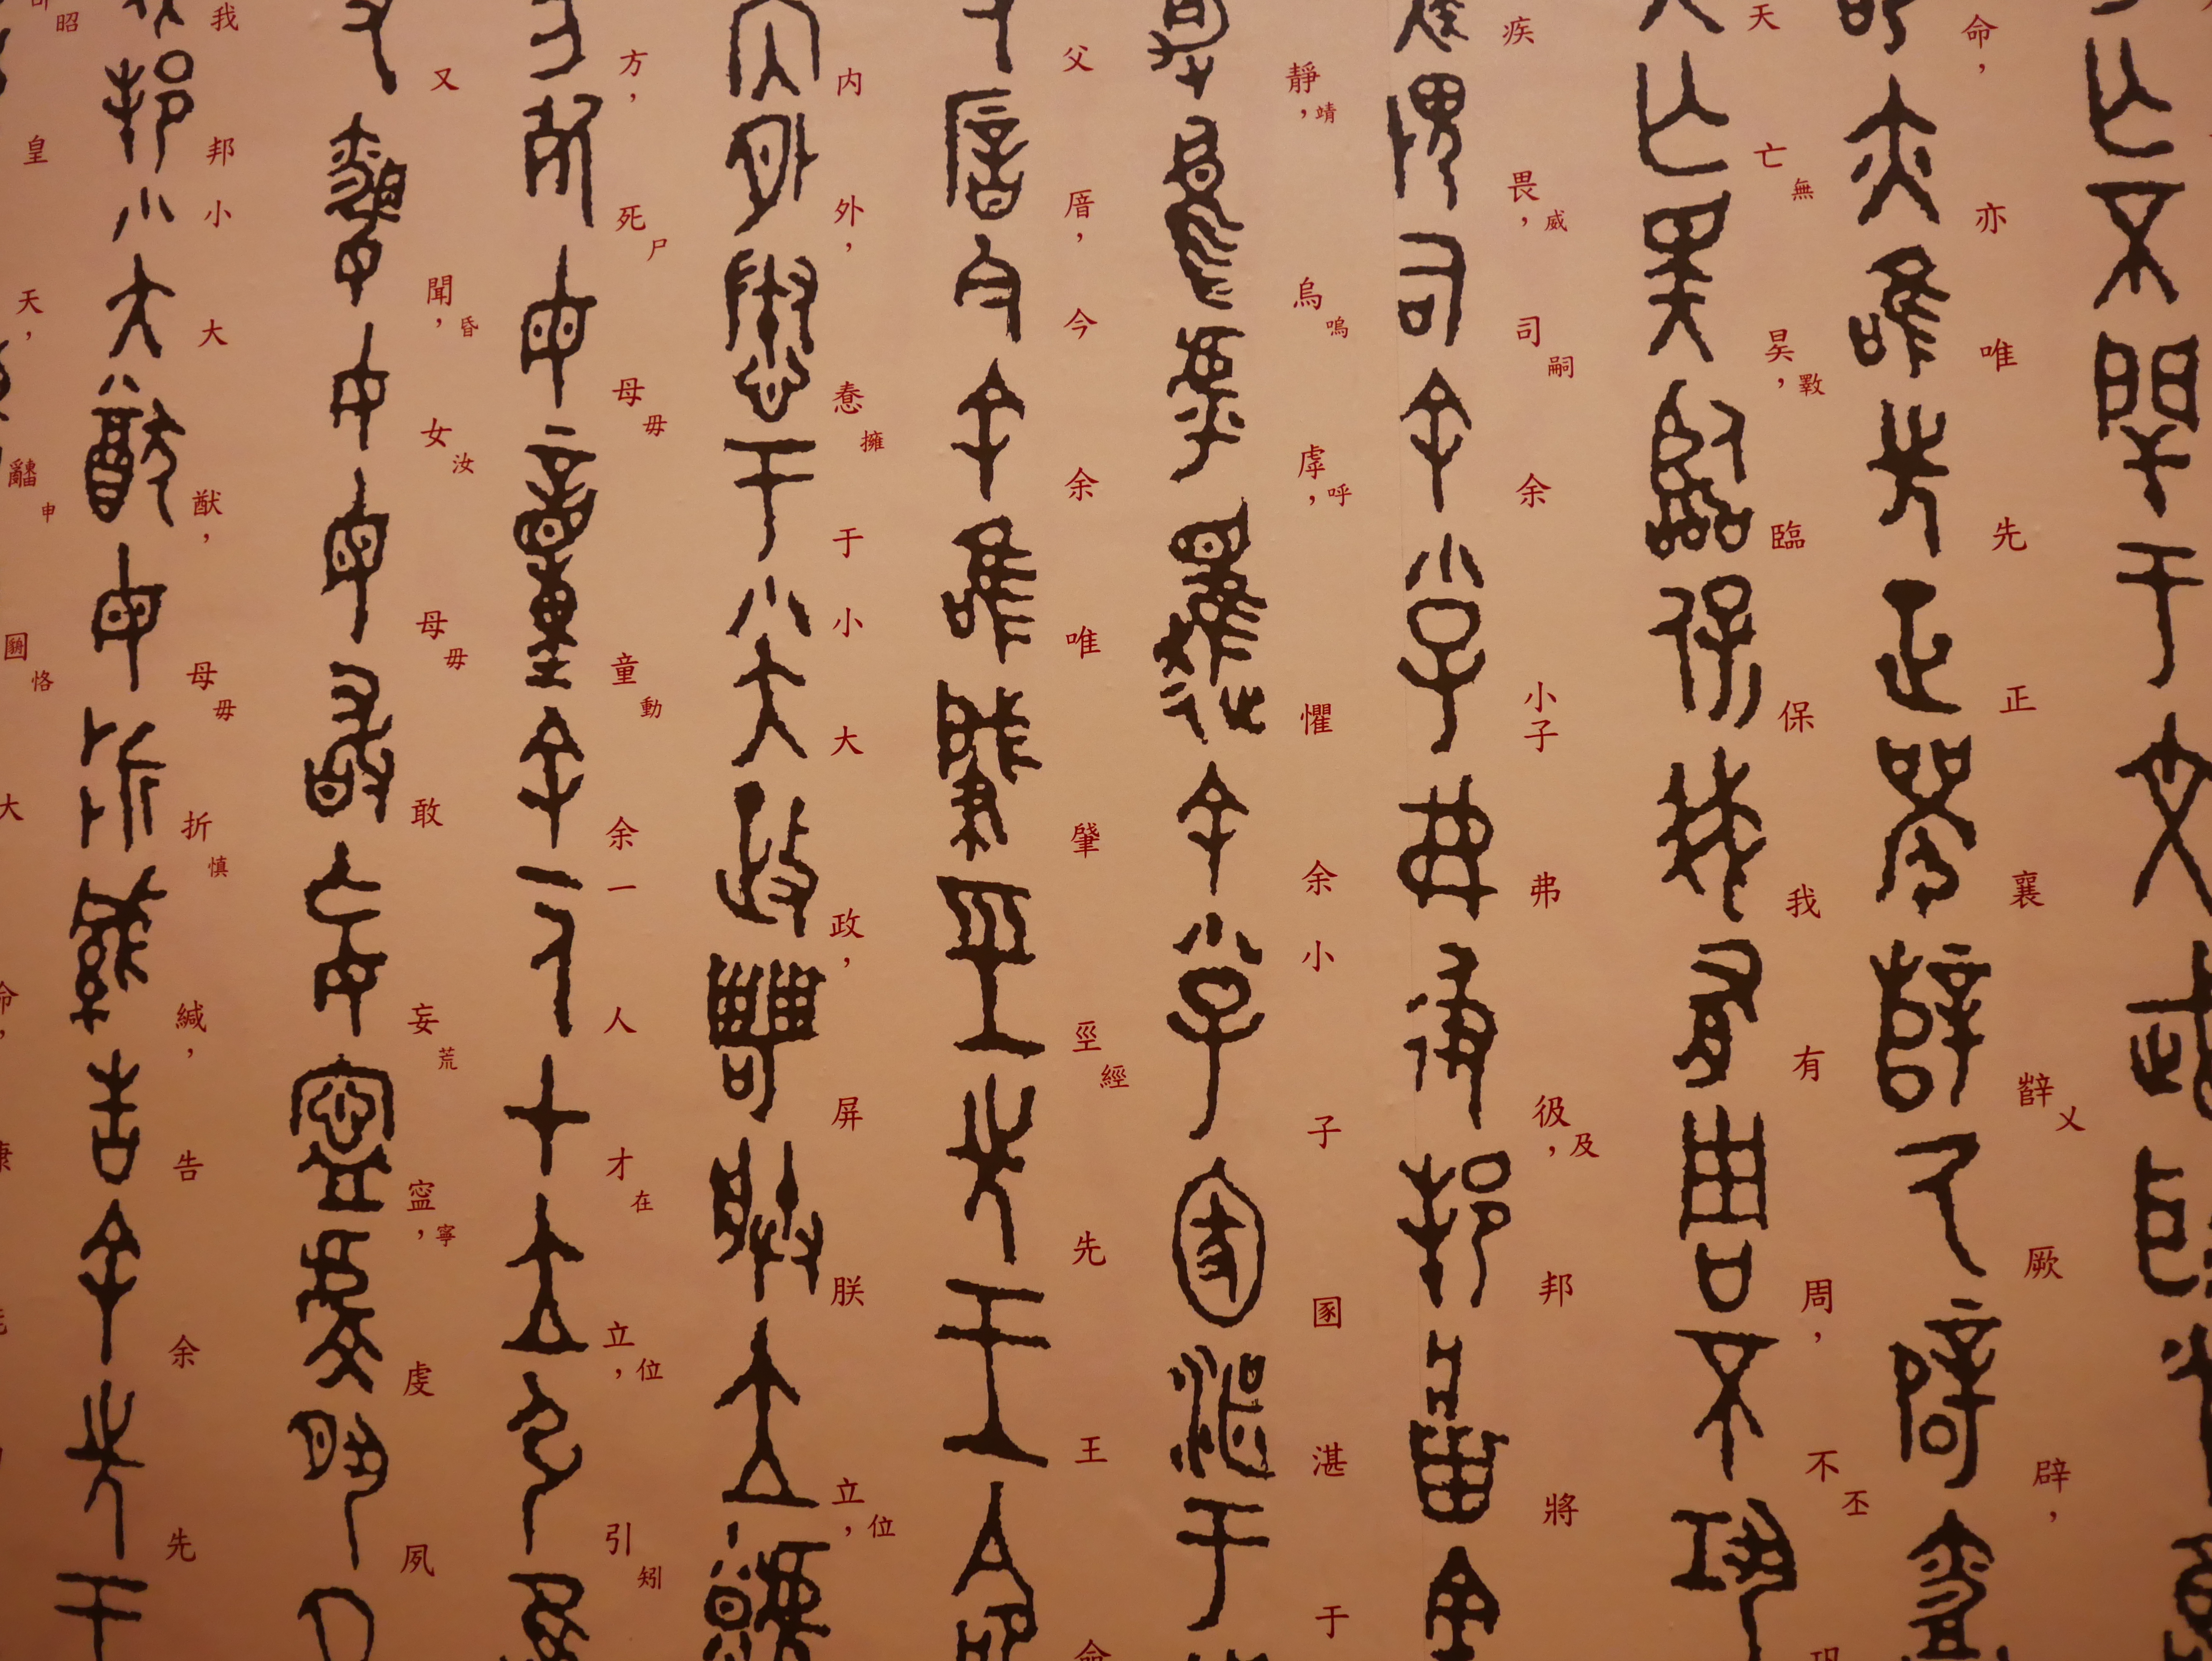 亡不閈于文武耿
命,亦唯先正襄辥乂厥辟,
天亡無昊,斁臨保我有周,不丕巩
疾畏,威司嗣余小子弗彶,及邦將
靜,靖烏嗚虖,呼懼余小子圂湛于
父厝,今余唯肇巠經先王命
内外,惷擁于小大政,屏朕立,位
方,死尸母毋童動余一人才在立,位引矧
又聞,昏女汝母毋敢妄荒寍,寧虔夙
我邦小大猷,母毋折慎緘,告余先
昭皇天,申恪大命,